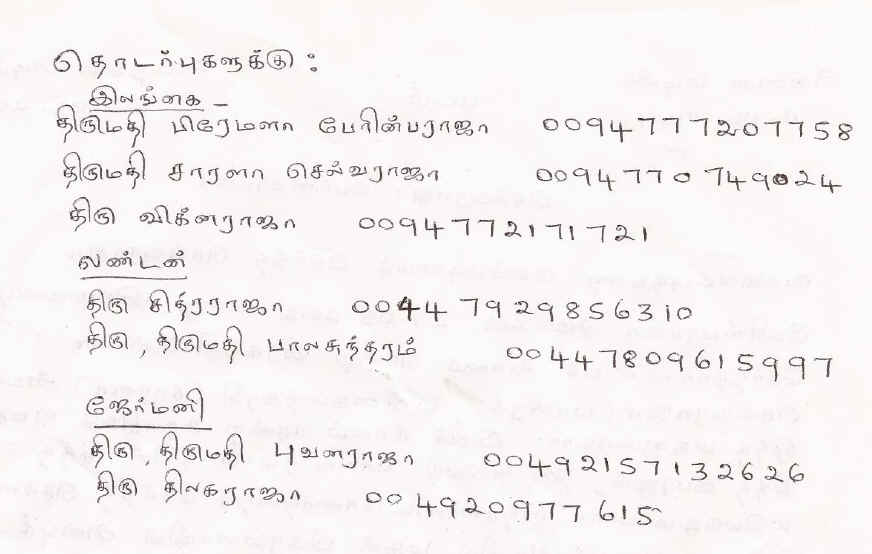 தொடர்புகளுக்கு :
இலங்கை -
திருமதி பிரேமளா பேரின்பராஜா 0094777207758
திருமதி சாரளா செல்வராஜா 0094770749024
திரு விக்னராஜா 0094772171721
லண்டன்
திரு சித்ரராஜா 0044 7929856310
திரு , திருமதி பாலசுந்தரம் 00447809615997
ஜேர்மனி
திரு , திருமதி புவனராஜா 0049215713 2626
திரு திலகராஜா 004920977615